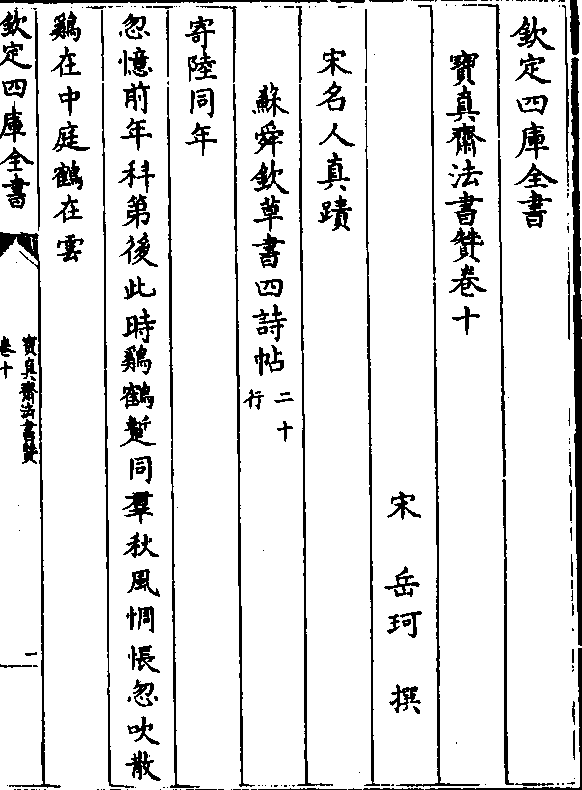 欽定四庫全書
寶真齋法書贊卷十
宋 岳珂 撰
宋名人真蹟
蘇舜欽草書四詩帖二十行
寄陸同年
忽憶前年科第後此時鷄鶴蹔同羣秋風惆悵忽吹散
鷄在中庭鶴在雲
欽定四庫全書
寶真齋法書贊
卷十
一